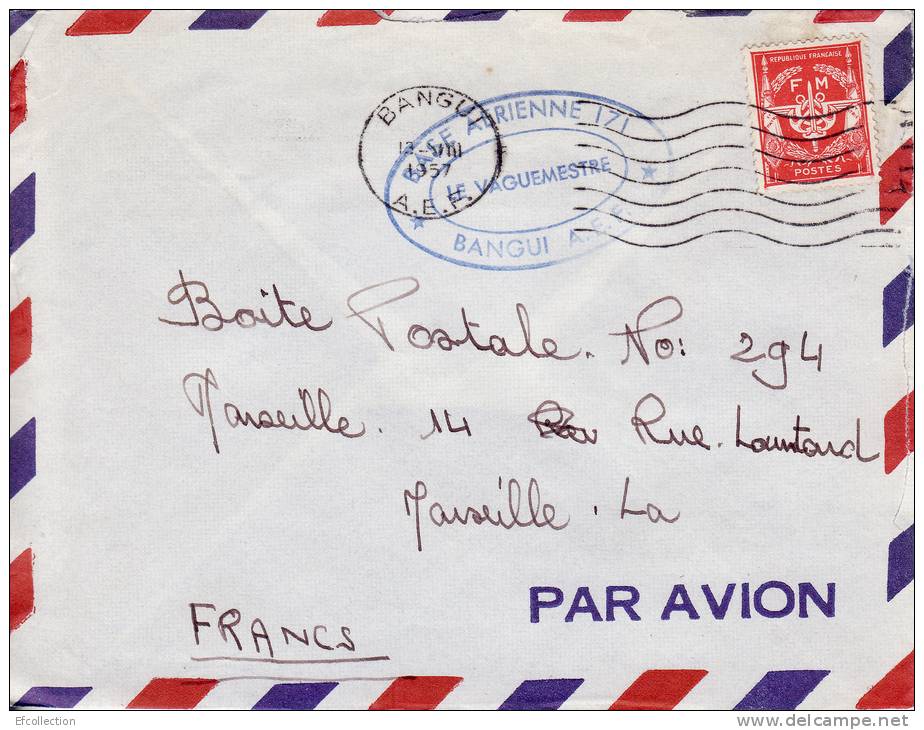 BANGUI
13-VIII
1957
A.E.F.
BASE AERIENNE 171
LE VAGUEMESTRE
BANGUI A.E.F.
REPUBLIQUE FRANCAISE
F M
POSTES
Boite Postale. No: 294
Marseille. 14 Rue.
Marseille. La
PAR AVION
FRANCS
Efcollection
delcampe.net